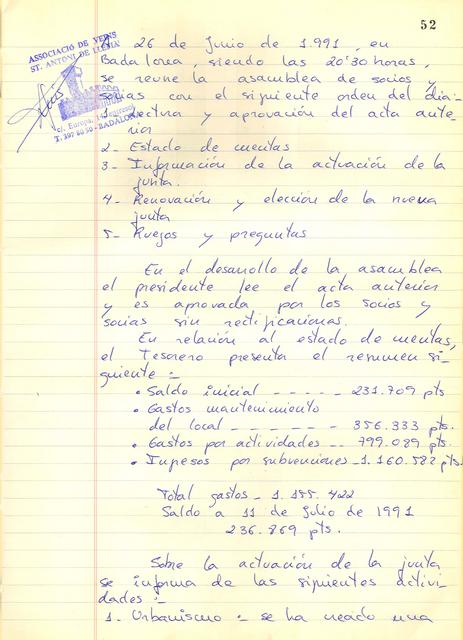 52
ASSOCIACIÓ DE VEÏNS
ST. ANTONI DE LLEFIÀ
c/. Europa, 14, entresol
T. 397 80 50 - BADALONA
A 26 de Junio de 1.991, en
Badalona, siendo las 20'30 horas,
se reune la asamblea de socios y
socias con el siguiente orden del dia:
1- Lectura y aprovación del acta ante-
rior
2- Estado de cuentas
3- Información de la actuación de la
junta.
4- Renovación y elección de la nueva
junta
5- Ruegos y preguntas
En el desarrollo de la asamblea
el presidente lee el acta anterior
y es aprovada por los socios y
socias sin rectificaciones.
En relación al estado de cuentas,
el Tesorero presenta el resumen si-
guiente :-
• Saldo inicial - - - - - 231.709 pts
• Gastos mantenimiento
del local - - - - - - 356.333 pts.
• Gastos por actividades - - 799.089 pts.
• Ingresos por subvenciones - 1.160.582 pts
Total gastos - 1.155.422
Saldo a 11 de Julio de 1991
236.869 pts.
Sobre la actuación de la junta
se informa de las siguientes activi-
dades :-
1- Urbanismo :- se ha creado una